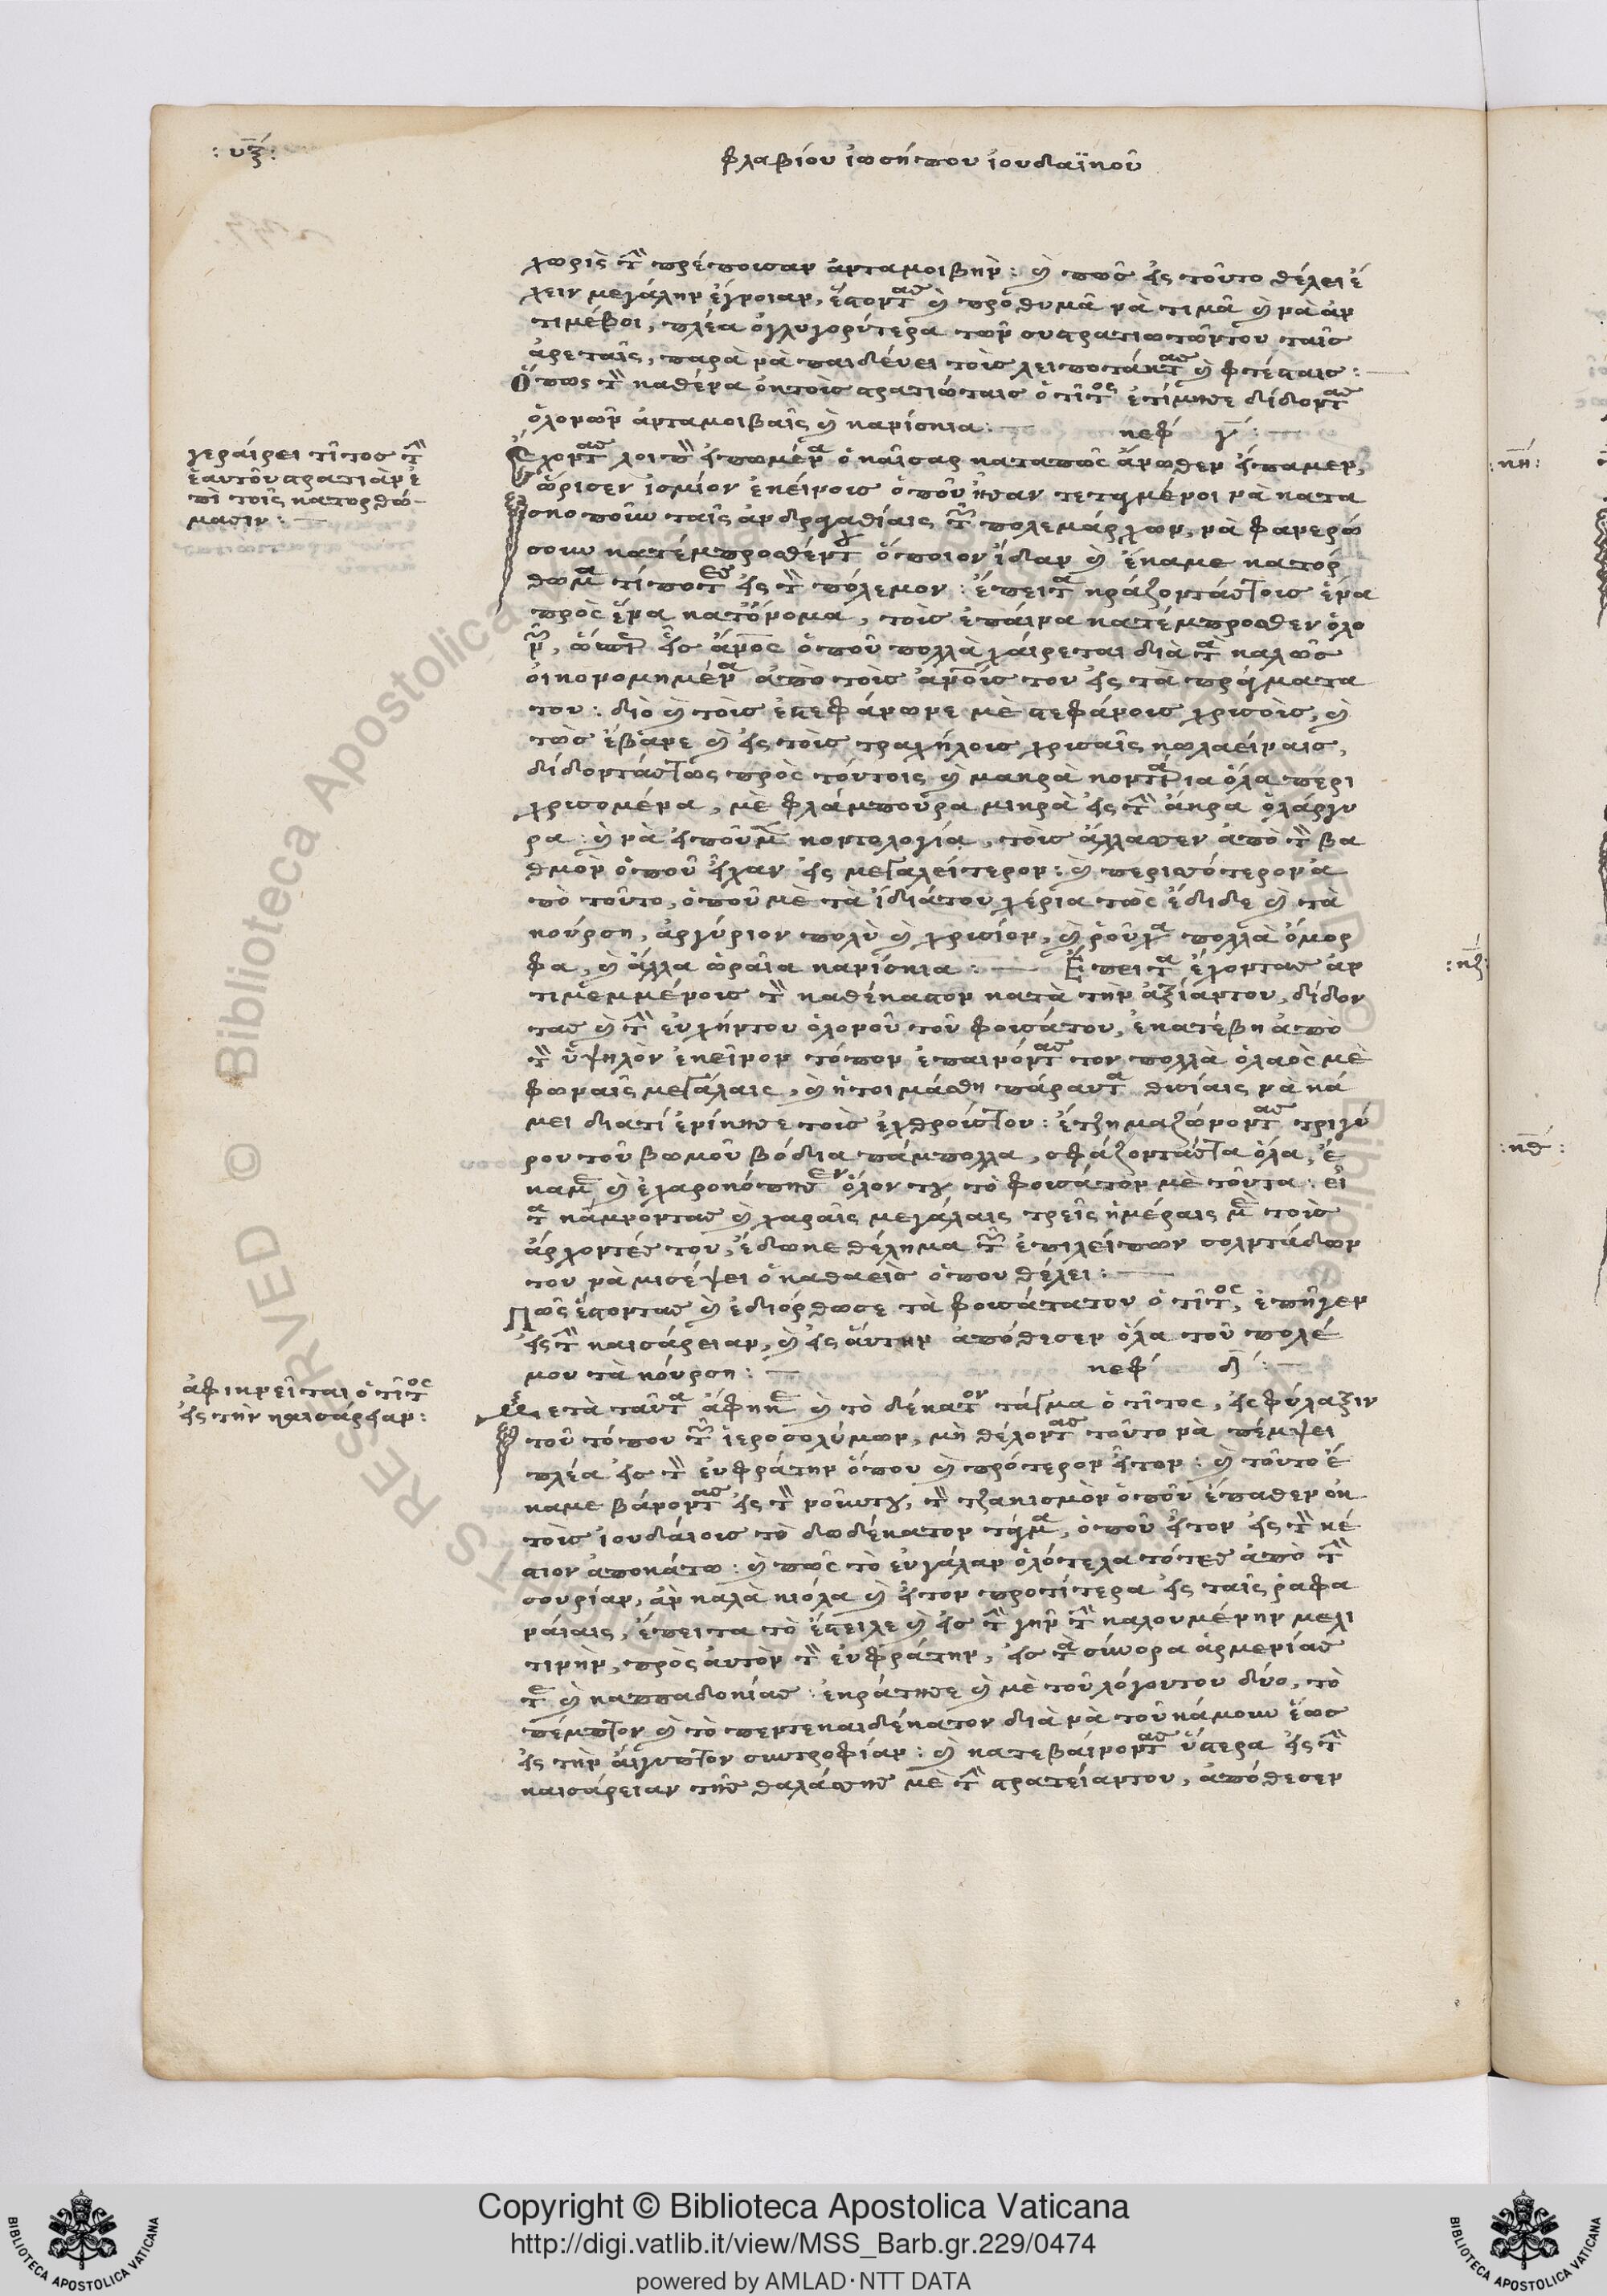 : υξ :
φλαβίου ἰωσήπου ἰουδαϊκοῦ
χωρὶς τὴν πρέπουσαν ἀνταμοιβήν: καὶ πῶς εἰς τοῦτο θέλει ἔ
χειν μεγάλην ἔγνοιαν, ἔστοντας καὶ προθυμᾶ νὰ τιμᾶ καὶ νὰ ἀν
τιμέβει, πλέα ὀγλυγορύτερα τῶν συστρατιωτῶντου ταῖς
ἀρεταῖς, παρὰ νὰ παιδένει τοὶς λειποτάκτας καὶ φτέσταις:
Ὅπως τὴν καθένα ἐκτοὶς στρατιώταις ὁ τῖτος ἐτίμησε δίδοντας
ὁλονῶν ἀνταμοιβαῖς καὶ κανίσκια: κεφ γ:
Ἔχοντας λοιπὸν εἰπωμένα ὁ καῖσαρ καταπῶς ἄνωθεν εἴπαμεν,
ὥρισεν ἰσμίον ἐκείνοις ὁποῦ ἦσαν τεταγμένοι νὰ κατα
σκοποῦν ταῖς ἀνδραγαθίαις τῶν πολεμάρχων, νὰ φανερώ
σουν κατέμπροσθέντου ὅποιον εἶδαν καὶ ἔκαμε κατόρ
θωμα τίποτες εἰς τὸν πόλεμον: ἔπειτα κράζοντάςτοις ἕνα
πρὸς ἕνα κατόνομα, τοὶς ἐπάινα κατέμπροσθεν ὁλο
νῶν, ὥσπερ εἷς ἄνος ὁποῦ πολλὰ χαίρεται διὰ τὰ καλῶς
οἰκονομημένα ἀπὸ τοὶς ἀνοίς του εἰς τὰ πράγματα
του: διὸ καὶ τοὶς ἐστεφάνωνε μὲ στεφάνοις χρισοὶς, καὶ
τῶς ἐβᾶνε καὶ εἰς τοὶς τραχήλοις χρισαῖς κωλαείναις,
δίδοντάςτως πρὸς τούτοις καὶ μακρὰ κοντάρια ὅλα περι
χρισομένα, μὲ φλάμπουρα μικρὰ εἰς τὴν ἄκρα ὁλάργυ
ρα: καὶ νὰ εἰποῦμεν κοντολογία, τοὶς ἄλλασεν ἀπὸ τὸν βα
θμὸν ὁποῦ εἶχαν εἰς μεγαλείτερον: καὶ περισσότερον ἀ
πὸ τοῦτο, ὁποῦ μὲ τὰ ἰδιάτου χέρια τῶς ἔδιδε καὶ τὰ
κούρση, ἀργύριον πολὺ καὶ χρισίον, καὶ ροῦχα πολλὰ ὄμορ
φα, καὶ ἄλλα ὡραῖα κανίσκια: Ἔπειτα ἔχοντας ἀν
τιμεμμένοις τὴν καθέκαστον κατὰ τὴν ἀξίαντου, δίδον
τας καὶ τὴν εὐχήντου ὁλονοῦ τοῦ φουσάτου, ἐκατέβη ἀπὸ
τὸν ὑψηλὸν ἐκεῖνον τόπον ἐπαινόντας τον πολλὰ ὁ λαὸς μὲ
φωναῖς μεγάλαις, καὶ ἡτοιμάσθη πάραυτα θυσίαις νὰ κά
μει διατί ἐνίκησε τοὶς ἐχθροίςτου: ἔτζη μαζώνοντας τριγύ
ρου τοῦ βωμοῦ βόδια πάμπολλα, σφάζοντάςτα ὅλα, ἔ
καμε καὶ ἐχαροκόπησεν ὅλον του τὸ φουσάτον μὲ τοῦτα: εἶ
τα κάμνοντας καὶ χαραῖς μεγάλαις τρεῖς ἡμέραις μὲ τοὶς
ἄρχοντές του, ἔδωκε θέλημα τῶν ἐπιλείπων σολντάδων
του νὰ μισέψει ὁ καθαεὶς ὅπου θέλει:
Πῶς ἔστοντας καὶ ἐδιόρθωσε τὰ φουσάτατου ὁ τῖτος, ἐπῆγεν
εἰς τὴν καισάρειαν, καὶ εἰς αὐτὴν ἀπόθεσεν ὅλα τοῦ πολέ
μου τὰ κούρση: κεφ δ:
Μετὰ ταῦτα ἄφηκε καὶ τὸ δέκατον τάγμα ὁ τῖτος, εἰς φύλαξιν
τοῦ τόπου τῶν ἱεροσολύμων, μὴ θέλοντας τοῦτο νὰ πέμψει
πλέα εἰς τὸν εὐφράτην ὅπου καὶ πρότερον ἦτον: καὶ τοῦτο ἔ
καμε βάνοντας εἰς τὸν νοῦντου, τὸν τζακισμὸν ὁποῦ ἔπαθεν ἐκ
τοὶς ἰουδαίοις τὸ δωδέκατον τάγμα, ὁποῦ ἦτον εἰς τὸν κέ
στιον ἀποκάτω: καὶ πῶς τὸ εὐγάλαν ὁλότελα τότες ἀπὸ τὴν
σουρίαν, ἂν καλὰ κιόλα καὶ ἦτον προτίτερα εἰς ταῖς ῥαφα
νάιαις, ἔπειτα τὸ ἔστειλε καὶ εἰς τὴν γῆν τὴν καλουμένην μελι
τινὴν, πρὸς αὐτὸν τὸν εὐφράτην, εἰς τὰ σύνορα ἀρμενίας
τε καὶ καππαδοκίας: ἐκράτησε καὶ μὲ τοῦ λόγουτου δύο, τὸ
πέμπτον καὶ τὸ πεντεκαιδέκατον διὰ νὰ τοῦ κάμουν ἕως
εἰς τὴν αἴγυπτον συντροφίαν: καὶ κατεβαίνοντας ὕστερα εἰς τὴν
καισάρειαν τῆς θαλάσσης μὲ τὴν στρατείαντου, ἀπόθεσεν
γεραίρει τῖτος τὴν
ἑαυτοῦ στρατιὰν ἐ
πὶ τοῖς κατορθώ-
μασιν:
ἀφικνεῖται ὁ τῖτος
εἰς τὴν καισάρειαν:
: κη :
: κθ :
Copyright © Biblioteca Apostolica Vaticana
http://digi.vatlib.it/view/MSS_Barb.gr.229/0474
powered by AMLAD·NTT DATA
BIBLIOTECA APOSTOLICA VATICANA
BIBLIOTECA APOSTOLICA VATICANA